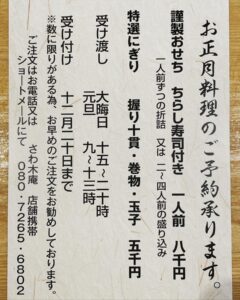 お正月料理のご予約承ります。
謹製おせち　ちらし寿司付き　一人前　八千円
一人前ずつの折詰　又は　二～四人前の盛り込み
特選にぎり　握り十貫・巻物・玉子　五千円
受け渡し　大晦日　十五～二十時
元旦　九～十三時
受け付け　十二月二十日まで
※数に限りがある為、お早めのご注文をお勧めしております。
ご注文はお電話又は　さわ木庵　店舗携帯
ショートメールにて　080-7265-6802